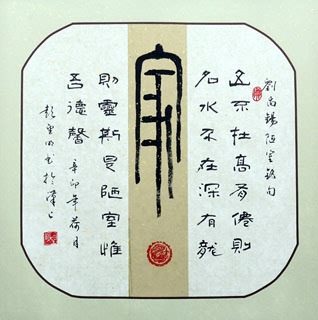 劉禹錫陋室銘句
山不在高有僊則
名水不在深有龍
則靈斯是陋室惟
吾德馨
辛卯年荷月